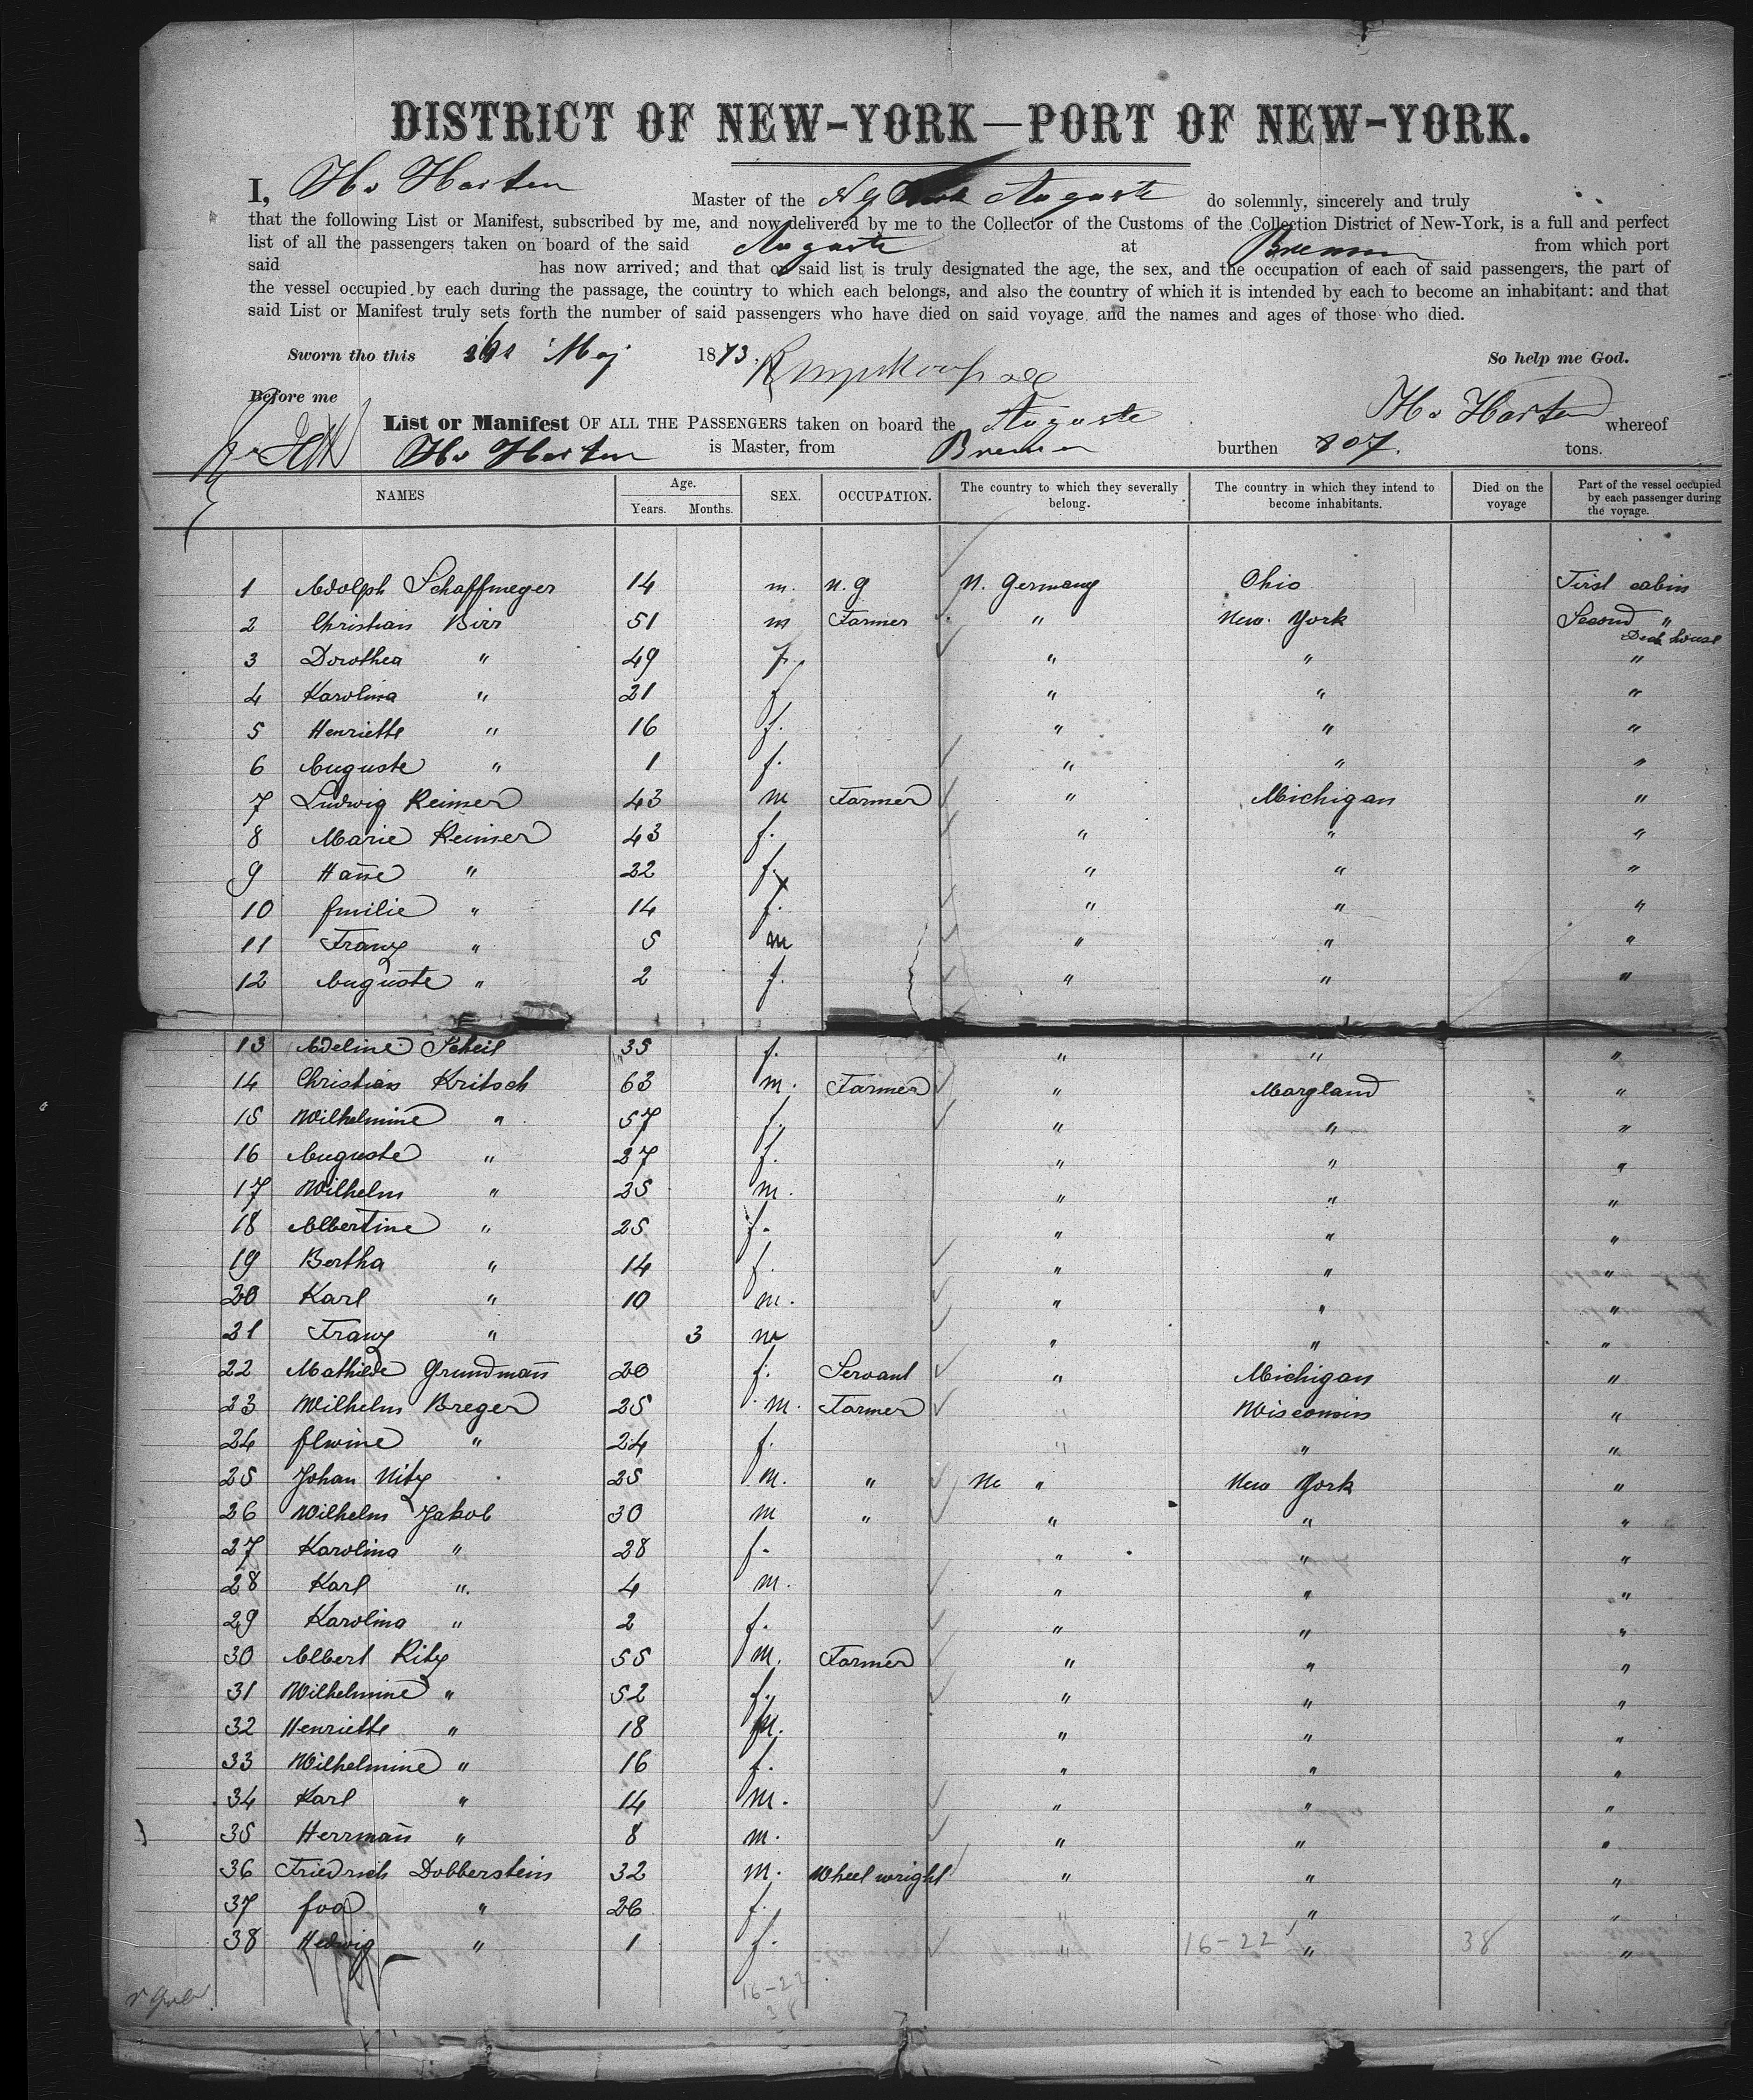 DISTRICT OF NEW-YORK—PORT OF NEW-YORK.
I, H. Harten Master of the N G Auguste do solemnly, sincerely and truly
that the following List or Manifest, subscribed by me, and now delivered by me to the Collector of the Customs of the Collection District of New-York, is a full and perfect
list of all the passengers taken on board of the said Auguste at Bremen from which port
said has now arrived; and that on said list is truly designated the age, the sex, and the occupation of each of said passengers, the part of
the vessel occupied by each during the passage, the country to which each belongs, and also the country of which it is intended by each to become an inhabitant: and that
said List or Manifest truly sets forth the number of said passengers who have died on said voyage and the names and ages of those who died.
Sworn tho this May 1873. So help me God.
Before me H. Harten
List or Manifest OF ALL THE PASSENGERS taken on board the Auguste whereof
H. Harten is Master, from Bremen burthen 807. tons.
NAMES Age. Years. Months. SEX. OCCUPATION. The country to which they severally belong. The country in which they intend to become inhabitants. Died on the voyage Part of the vessel occupied by each passenger during the voyage.
1 Adolph Schaffmeyer 14 m. n.g N. Germany Ohio First cabin
2 Christian Birr 51 m Farmer " New York Second "
Deck house
3 Dorothea " 49 f. " " "
4 Karolina " 21 f " " "
5 Henriette " 16 f. " " "
6 Auguste " 1 f. " " "
7 Ludwig Reimer 43 m Farmer " Michigan "
8 Marie Reimer 43 f. " " "
9 Han̄e " 22 f. " " "
10 Emilie " 14 f. " " "
11 Franz " 5 m " " "
12 Auguste " 2 f. " " "
13 Adeline Scheil 35 f. " " "
14 Christian Kritsch 63 m. Farmer " Maryland "
15 Wilhelmine " 57 f. " " "
16 Auguste " 27 f. " " "
17 Wilhelm " 25 m. " " "
18 Albertine " 25 f. " " "
19 Bertha " 14 f. " " "
20 Karl " 10 m. " " "
21 Franz " 3 m " " "
22 Mathilde Grundman̄ 20 f. Servant " Michigan "
23 Wilhelm Breger 25 m. Farmer " Wisconsin "
24 Elwine " 24 f. " " "
25 Johan Nitz 25 m. " " New York "
26 Wilhelm Jakob 30 m " " " "
27 Karolina " 28 f. " " "
28 Karl " 4 m. " " "
29 Karolina " 2 f. " " "
30 Albert Ritz 55 m. Farmer " " "
31 Wilhelmine " 52 f. " " "
32 Henriette " 18 " " "
33 Wilhelmine " 16 f. " " "
34 Karl " 14 m. " " "
35 Herrman̄ " 8 m. " " "
36 Friedrich Dobberstein 32 m. Wheel wright " " "
37 Eva " 26 f. " " "
38 Hedwig " 1 f. " 16-22 " 38 "
16-22
38